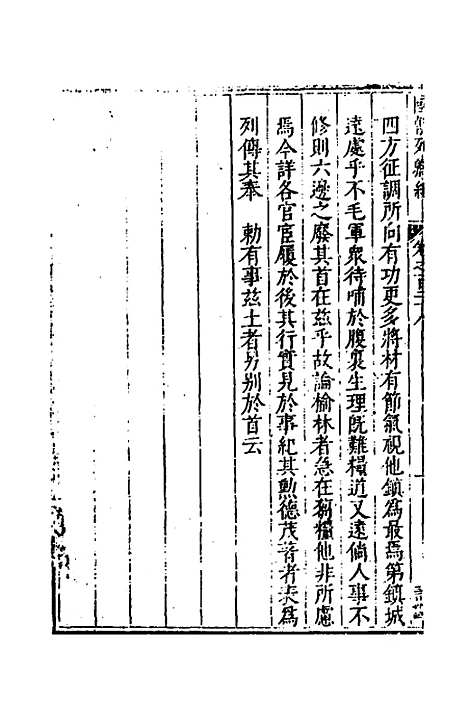 四方征調所向有功更多將材有節氣視他鎮為最焉第鎮城
遠處乎不毛軍衆待哺於腹裏生理旣難糧道又遠倘人事不
修則六邊之廢其首在兹乎故論榆林者急在芻糧他非所慮
焉今詳各官宦履於後其行實見於事紀其勲德茂著者夫為
列傳其奉　勅有事兹土者另别於首云